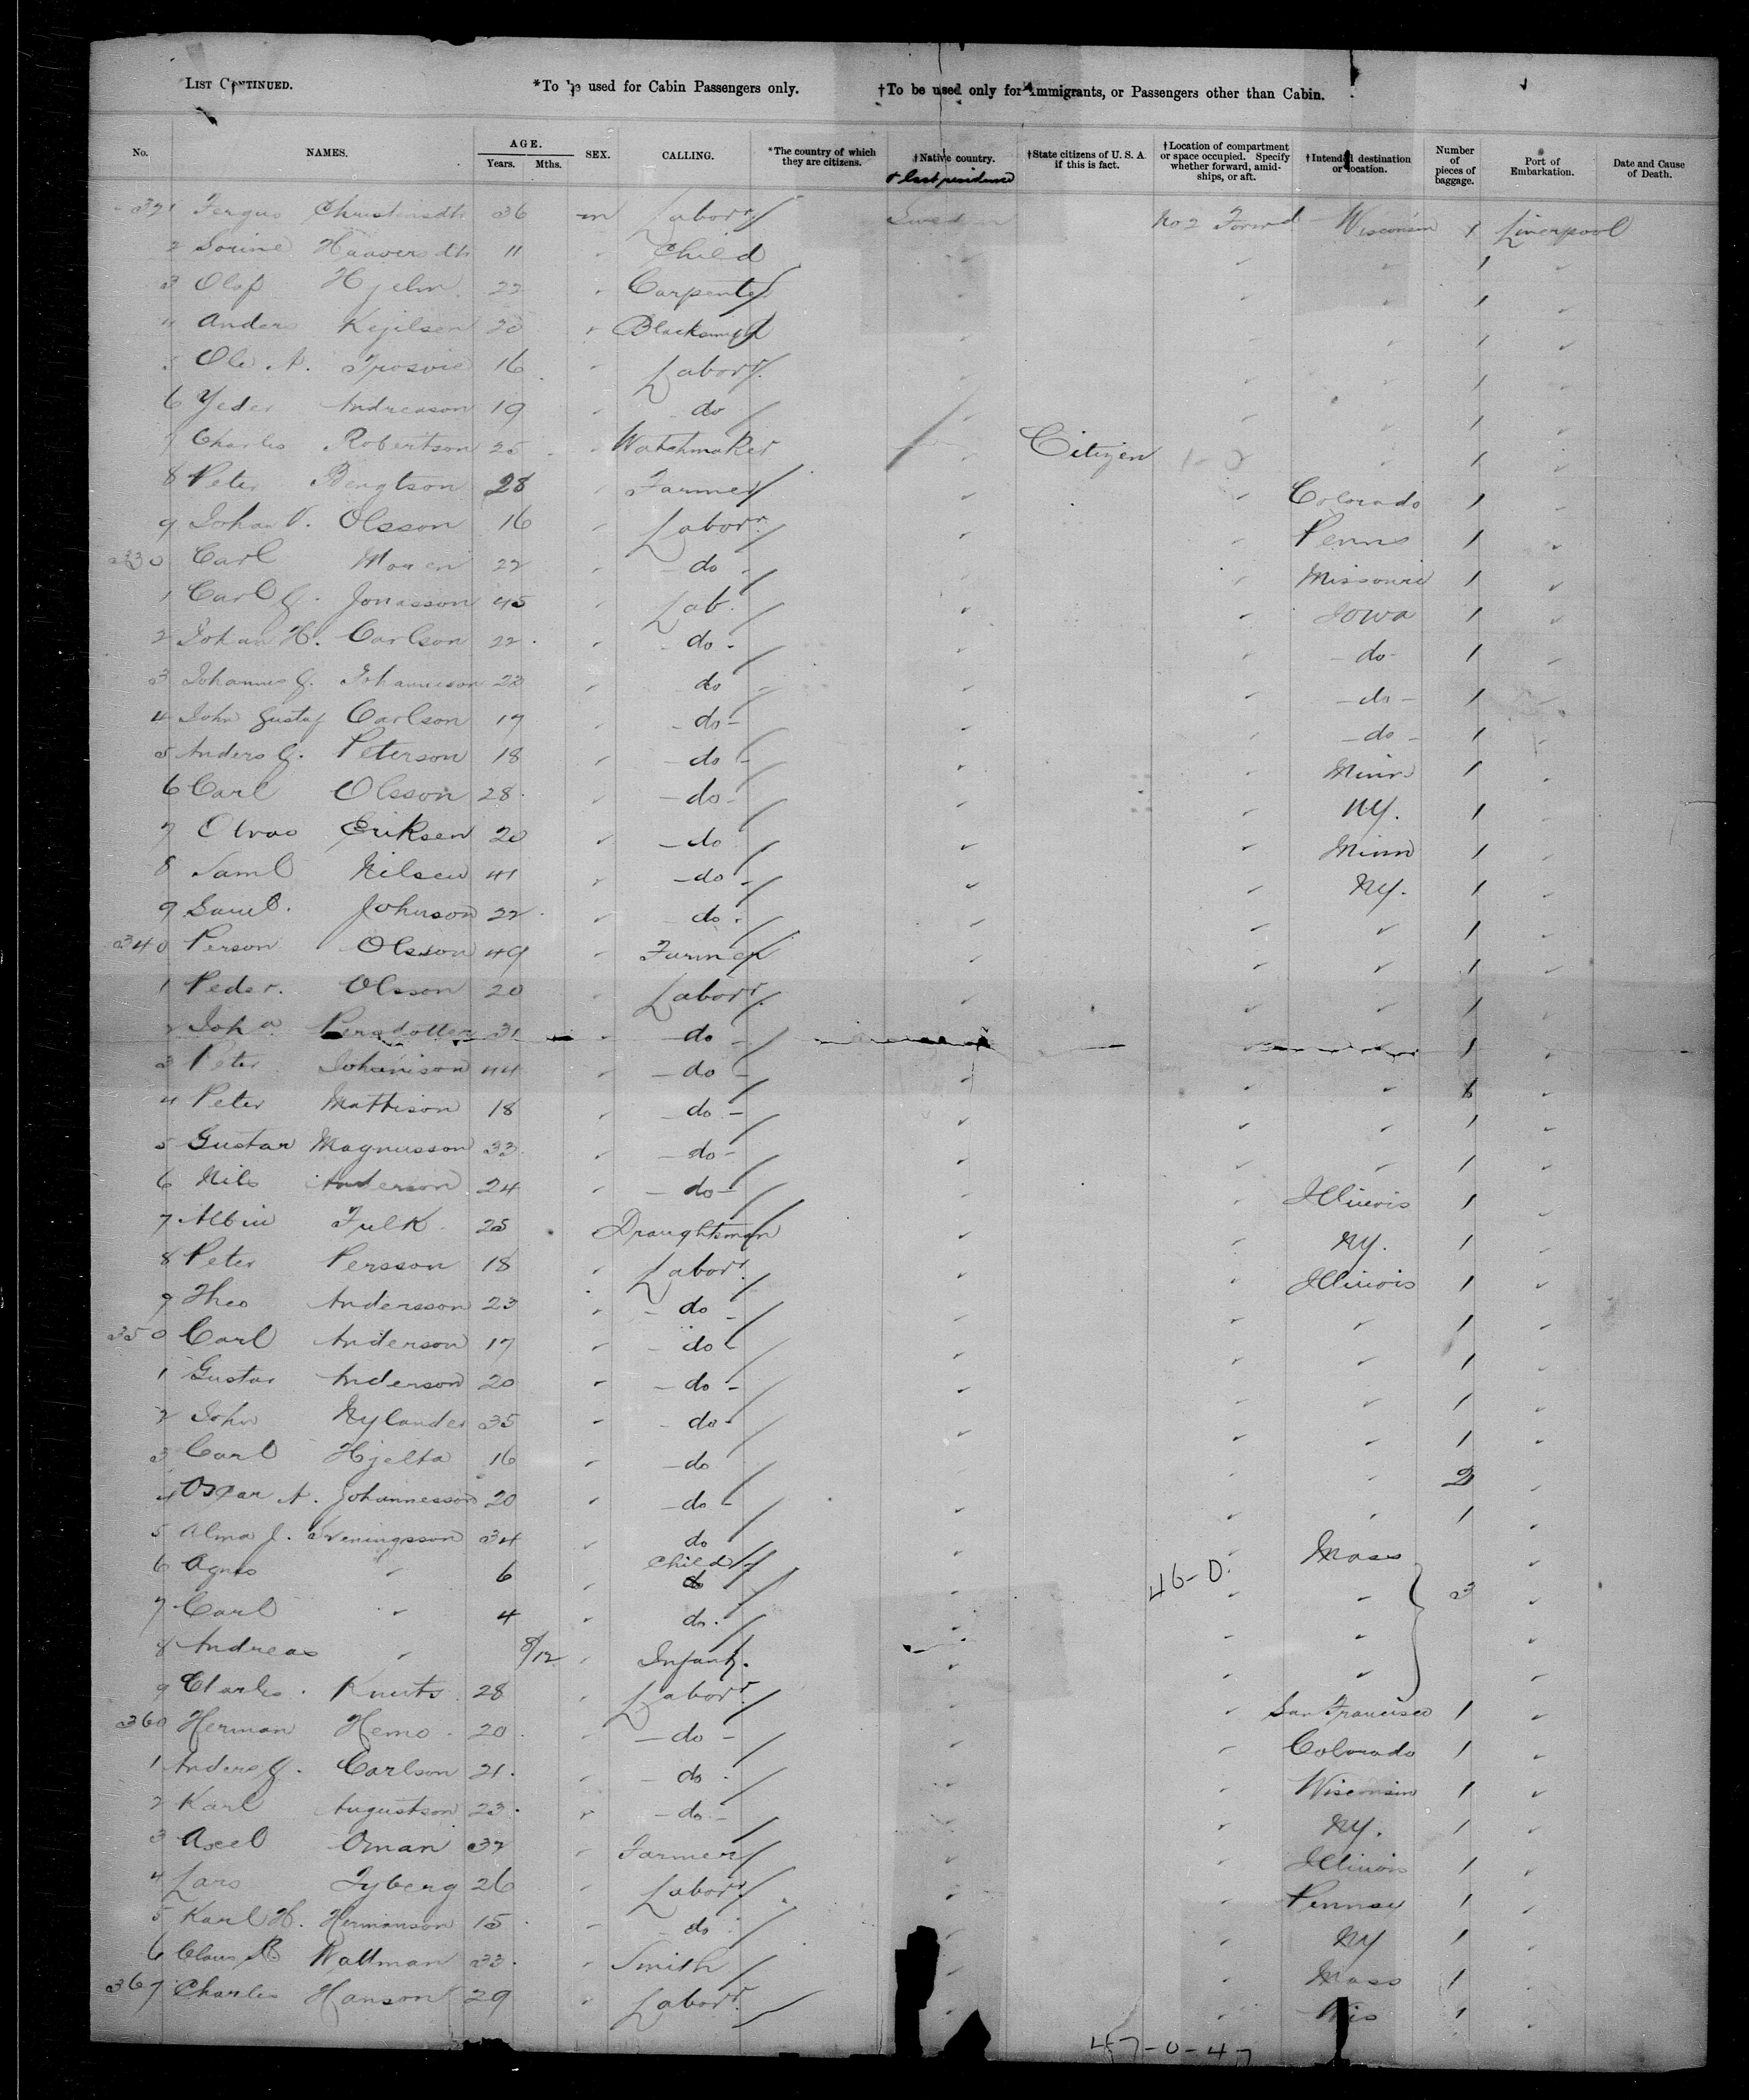 LIST CONTINUED. *To be used for Cabin Passengers only. †To be used only for Immigrants, or Passengers other than Cabin.
No. NAMES. AGE. Years. Mths. SEX. CALLING. *The country of which they are citizens. †Native country. & last residence †State citizens of U. S. A. if this is fact. †Location of compartment or space occupied. Specify whether forward, amidships, or aft. †Intended destination or location. Number of pieces of baggage. Port of Embarkation. Date and Cause of Death.
321 36 m Labor Sweden No 2 Forwd Wisconsin 1 Liverpool
2 11 " Child " " " 1 "
3 Olaf Hjelm 22 " Carpenter " " " 1 "
4 Anders 20 " Blacksmith " " " 1 "
5 Ole A. 16 " Labor " " " 1 "
6 Andreason 19 " do " " " 1 "
7 Charles Robertson 25 " Watchmaker " Citizen 1-0 " 1 "
8 Peter Bengtson 28 " Farmer " " Colorado 1 "
9 Johan V. Olsson 16 " Labor " " Penns 1 "
330 Carl 22 " do " " Missouri 1 "
1 Carl G. Jonasson 45 " Lab. " " Iowa 1 "
2 Johan H. Carlson 22 " do " " do 1 "
3 Johannes G. Johannison 23 " do " " do 1 "
4 John Gustaf Carlson 17 " do " " do 1 "
5 Anders G. Peterson 18 " do " " Minn 1 "
6 Carl Olsson 28 " do " " NY. 1 "
7 Eriksen 20 " do " " Minn 1 "
8 Saml Nilsen 41 " do " " NY. 1 "
9 Johnson 22 " do " " " 1 "
340 Person Olsson 49 " Farmer " " " 1 "
1 Peder. Olsson 20 " Labor " " " 1 "
2 Persdotter 31 " do " " " 1 "
3 Peter Johanison 44 " do " " " 1 "
4 Peter Mattison 18 " do " " " 1 "
5 Gustav Magnusson 33 " do " " " 1 "
6 Nils Anderson 24 " do " " Illinois 1 "
7 Albin Fulk 25 Draughtsman " " NY. 1 "
8 Peter Persson 18 " Labor " " Illinois 1 "
9 Theo Andersson 23 " do " " " 1 "
350 Carl Anderson 17 " do " " " 1 "
1 Gustav Anderson 20 " do " " " 1 "
2 John Nylander 35 " do " " " 1 "
3 Carl Hjelta 16 " do " " " 2 "
4 Oskar A. Johannesson 20 " do " " " 1 "
5 Alma J. Sveningsson 34 " do " " Mass "
6 Agnes " 6 " Child " 46-0. " " 3 "
7 Carl " 4 " do " " " "
8 Andreas " 8/12 " Infant. " " " "
9 Charles Knuts 28 " Labor " " San Francisco 1 "
360 Herman Hemo 20 " do " " Colorado 1 "
1 Anders G. Carlson 21 " do " " Wisconsin 1 "
2 Karl Augustson 23 " do " " NY. 1 "
3 Axel Oman 32 " Farmer " " Illinois 1 "
4 Lars Tyberg 26 " Labor " " Pennsy 1 "
5 Karl H. Hermanson 15 " do " " NY 1 "
6 Claus A. Wallman 33 " Smith " " Mass 1 "
367 Charles Hanson 29 " Labor " " Wis 1 "
47-0-47